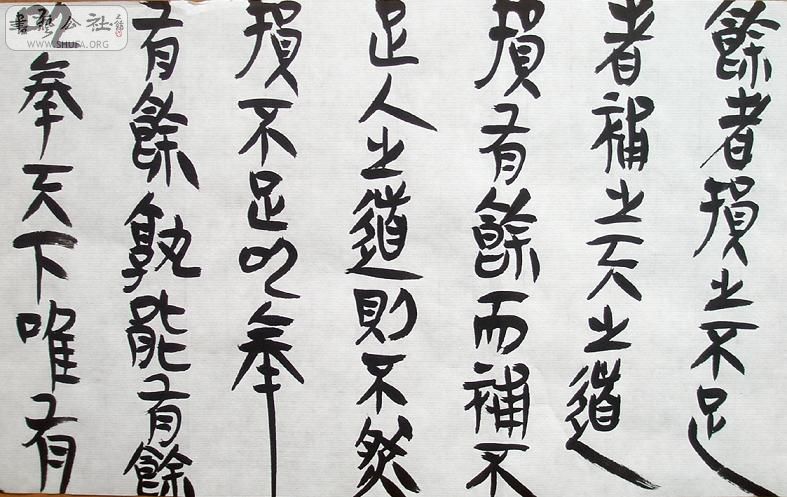 餘者損之不足
者補之天之道
損有餘而補不
足人之道則不然
損不足以奉
有餘孰能有餘
以奉天下唯有
書藝公社
WWW.SHUFA.ORG